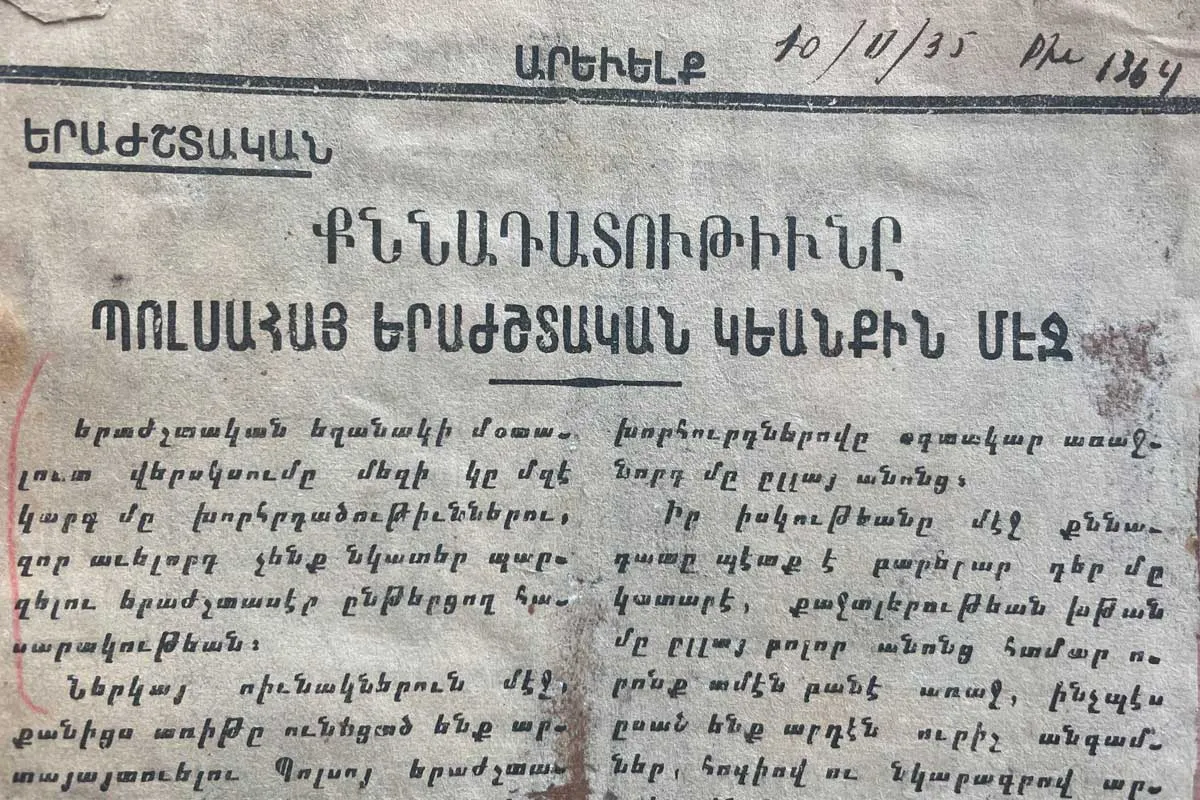 ԱՐԵՒԵԼՔ
10/II/35
1364
ԵՐԱԺՇՏԱԿԱՆ
ՔՆՆԱԴԱՏՈՒԹԻՒՆԸ
ՊՈԼՍԱՀԱՅ ԵՐԱԺՇՏԱԿԱՆ ԿԵԱՆՔԻՆ ՄԷՋ
Երաժշտական եղանակի մօտա-
լուտ վերսկսումը մեզի կը մղէ
կարգ մը խորհրդածութիւններու,
զոր աւելորդ չենք նկատեր պար-
զելու երաժշտասէր ընթերցող հա-
սարակութեան։
Ներկայ սիւնակներուն մէջ,
քանիցս առիթը ունեցած ենք ար-
տայայտուելու Պոլսոյ երաժշտա-
խորհուրդներովը օգտակար առաջ-
նորդ մը ըլլայ անոնց։
Իր իսկութեանը մէջ քննա-
դատը պէտք է բարերար դեր մը
կատարէ, քաջալերութեան խթան
մը ըլլայ բոլոր անոնց համար ո-
րոնք ամէն բանէ առաջ, ինչպէս
ըսած ենք արդէն ուրիշ անգամ-
ներ, հոգիով ու նկարագրով ար-